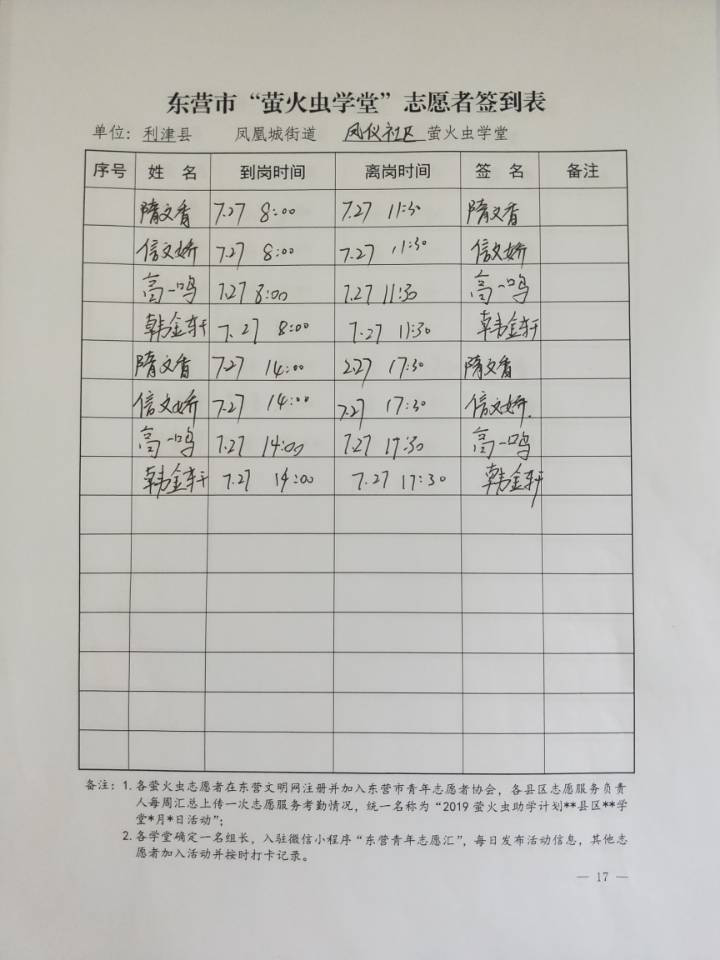 东营市“萤火虫学堂”志愿者签到表
单位：利津县 凤凰城街道 凤仪社区 萤火虫学堂
序号 姓 名 到岗时间 离岗时间 签 名 备注
隋文香 7.27 8:00 7.27 11:30 隋文香
信文娇 7.27 8:00 7.27 11:30 信文娇
高一鸣 7.27 8:00 7.27 11:30 高一鸣
韩金轩 7.27 8:00 7.27 11:30 韩金轩
隋文香 7.27 14:00 2.27 17:30 隋文香
信文娇 7.27 14:00 7.27 17:30 信文娇.
高一鸣 7.27 14:00 7.27 17:30 高一鸣
韩金轩 7.27 14:00 7.27 17:30 韩金轩
备注：1. 各萤火虫志愿者在东营文明网注册并加入东营市青年志愿者协会，各县区志愿服务负责
人每周汇总上传一次志愿服务考勤情况，统一名称为“2019 萤火虫助学计划**县区**学
堂*月*日活动”；
2. 各学堂确定一名组长，入驻微信小程序“东营青年志愿汇”，每日发布活动信息，其他志
愿者加入活动并按时打卡记录。
— 17 —